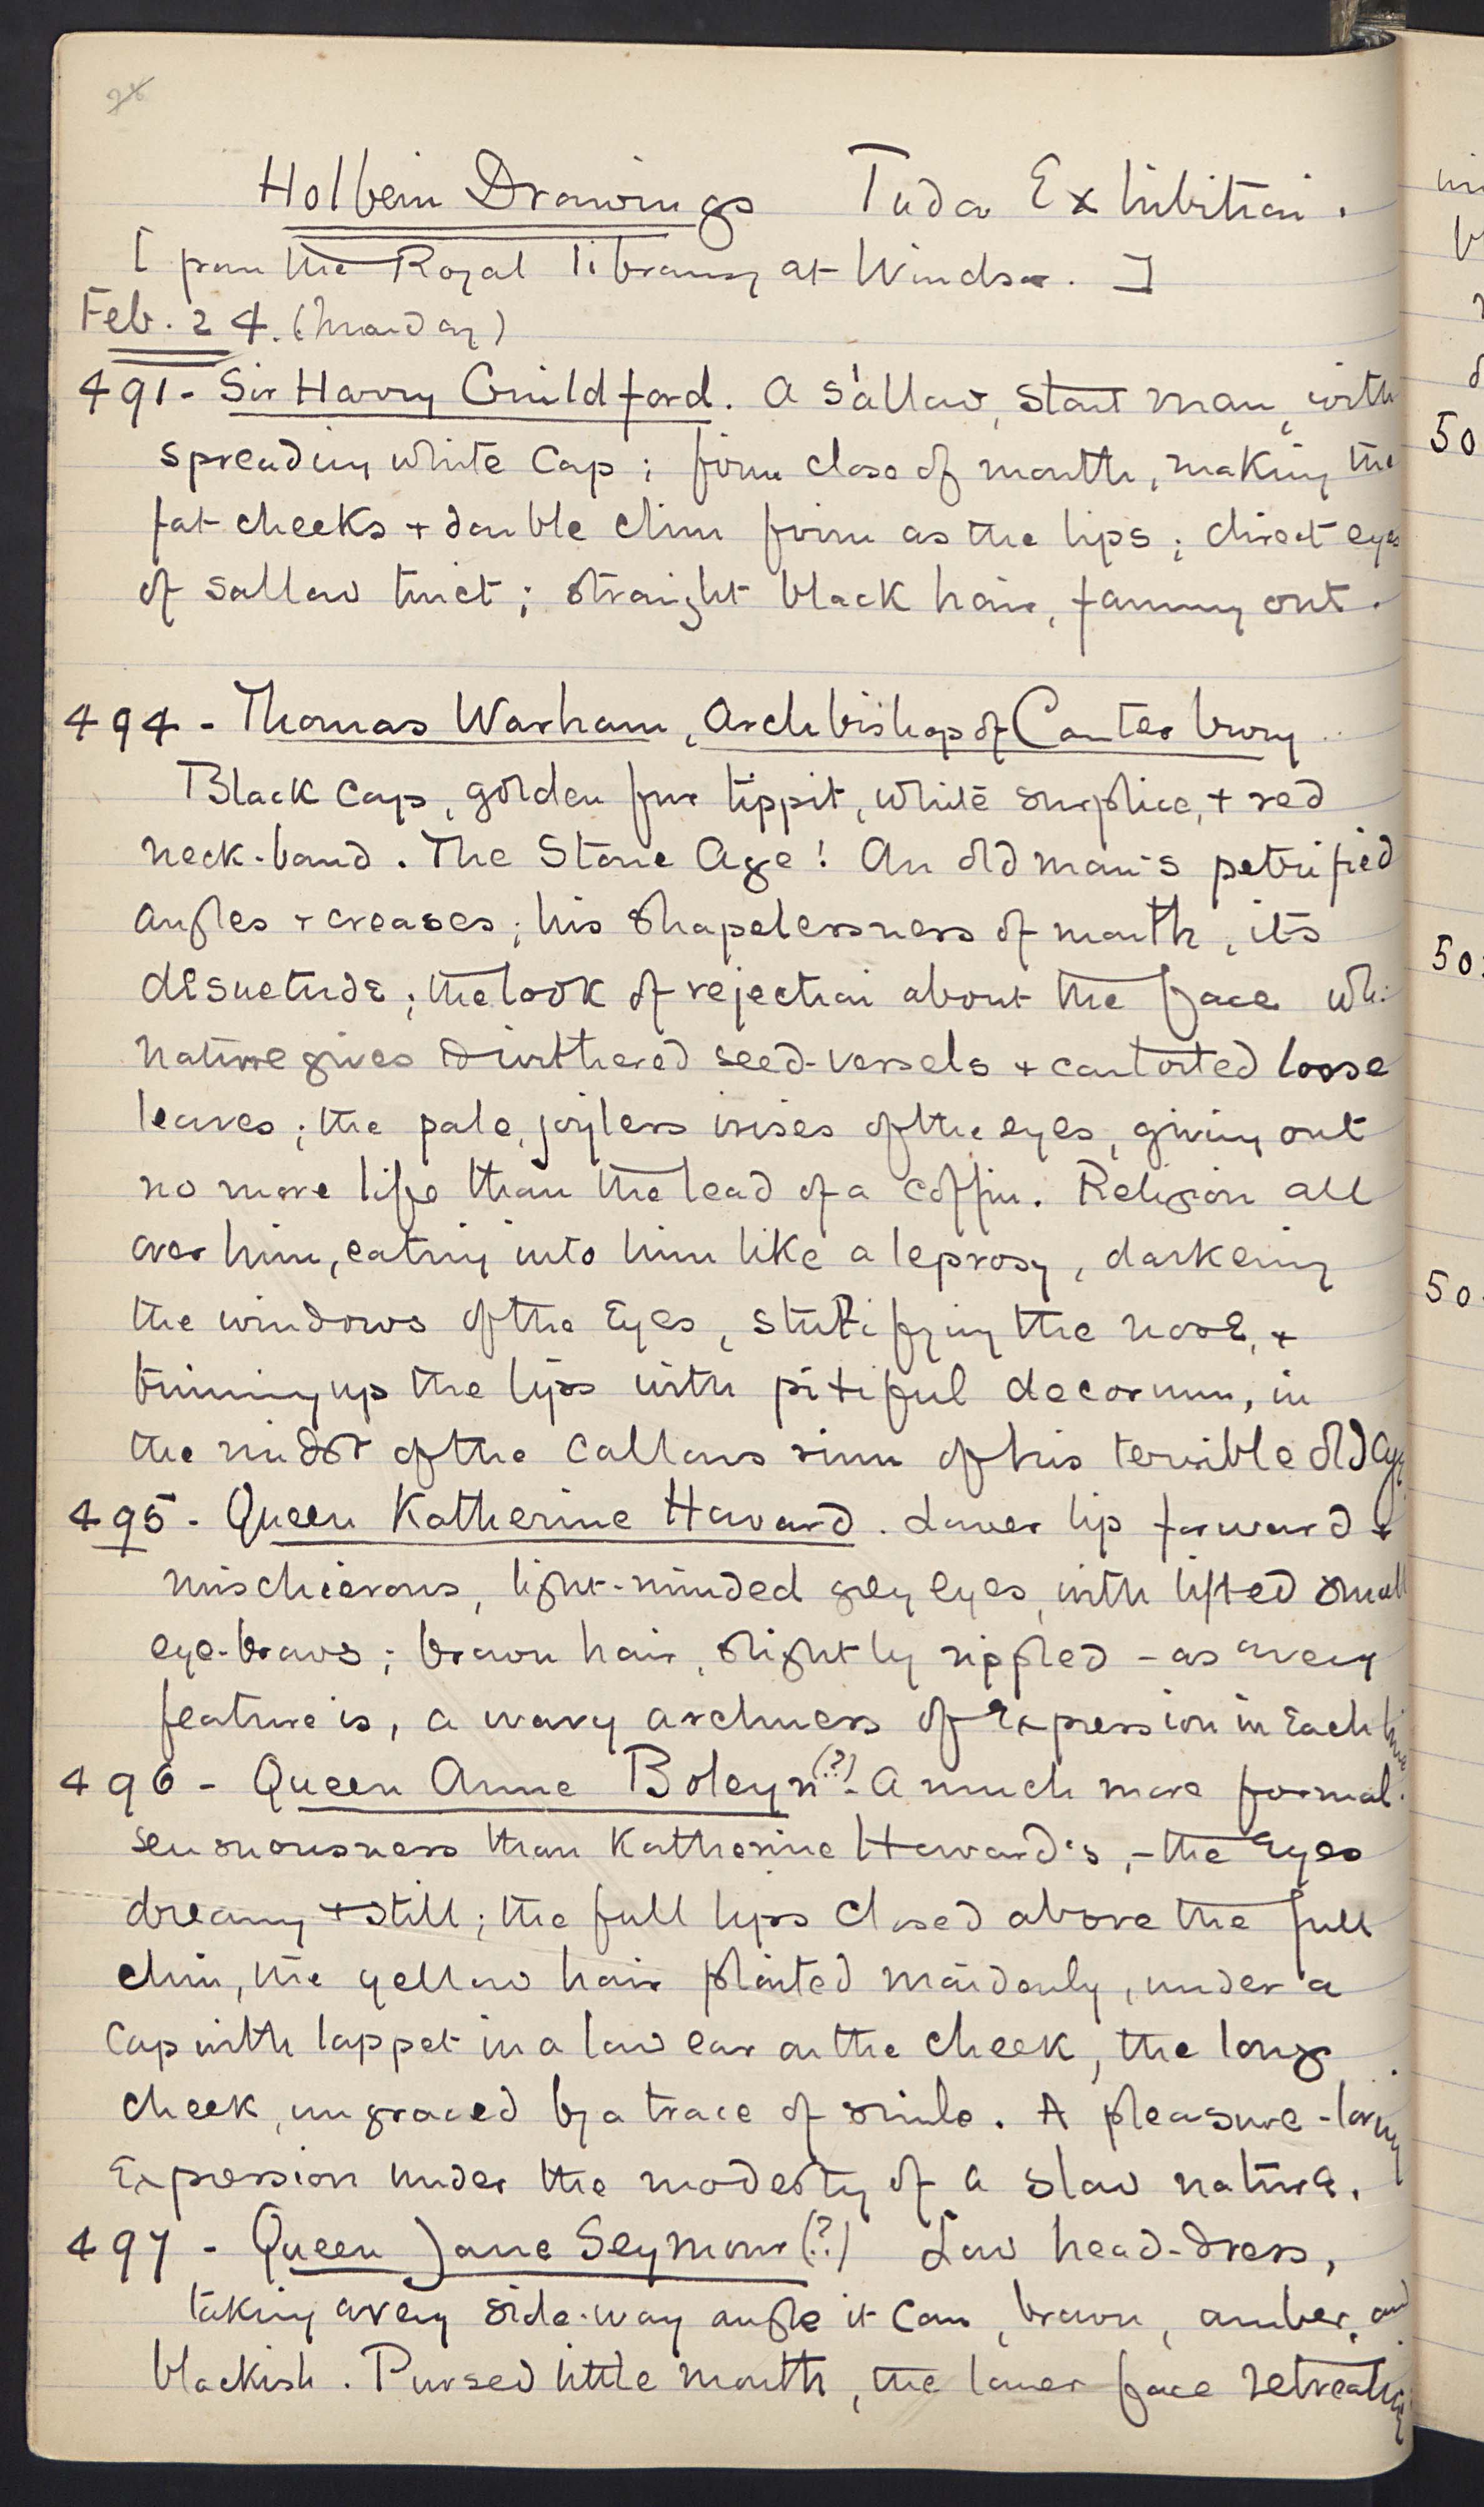 Holbein Drawings Tudor Exhibition.
[from the Royal Library at Windsor.]
Feb. 24. (Monday)
491 - Sir Harry Guildford. A sallow, stout man, with
spreading white cap; firm close of mouth, making the
fat cheeks + double chin firm as the lips; direct eyes
of sallow tinct; straight black hair, fanning out.
494 - Thomas Warham, Archbishop of Canterbury
Black cap, golden fur tippit, white surplice, + red
neck-band. The Stone Age! An old man's petrified
angles + creases; his shapelessness of mouth, its
desuetude; the look of rejection about the face wh:
nature gives to withered seed-vessels + contorted loose
leaves; the pale, joyless irises of the eyes, giving out
no more life than the lead of a coffin. Religion all
over him, eating into him like a leprosy, darkening
the windows of the Eyes, stultifying the nose, +
trimming up the lips with pitiful decorum, in
the midst of the callous ruin of his terrible old age
495 - Queen Katherine Howard. Lower lip forward +
mischievous, light-minded grey eyes, with lifted small
eye-brows; brown hair, slightly rippled - as every
feature is, a wavy archness of expression in each line
496 - Queen Anne Boleyn (?) - A much more formal
sensuousness than Katherine Howard's, - the Eyes
dreamy + still; the full lips closed above the full
chin, the yellow hair plaited maidenly, under a
cap with lappet in a low ear on the cheek, the long
cheek, ungraced by a trace of smile. A pleasure-loving
Expression under the modesty of a slow nature.
497 - Queen Jane Seymour (?) Low head-dress,
taking every side-way angle it can, brown, amber, and
blackish. Pursed little mouth, the lower face retreating
50
50
50